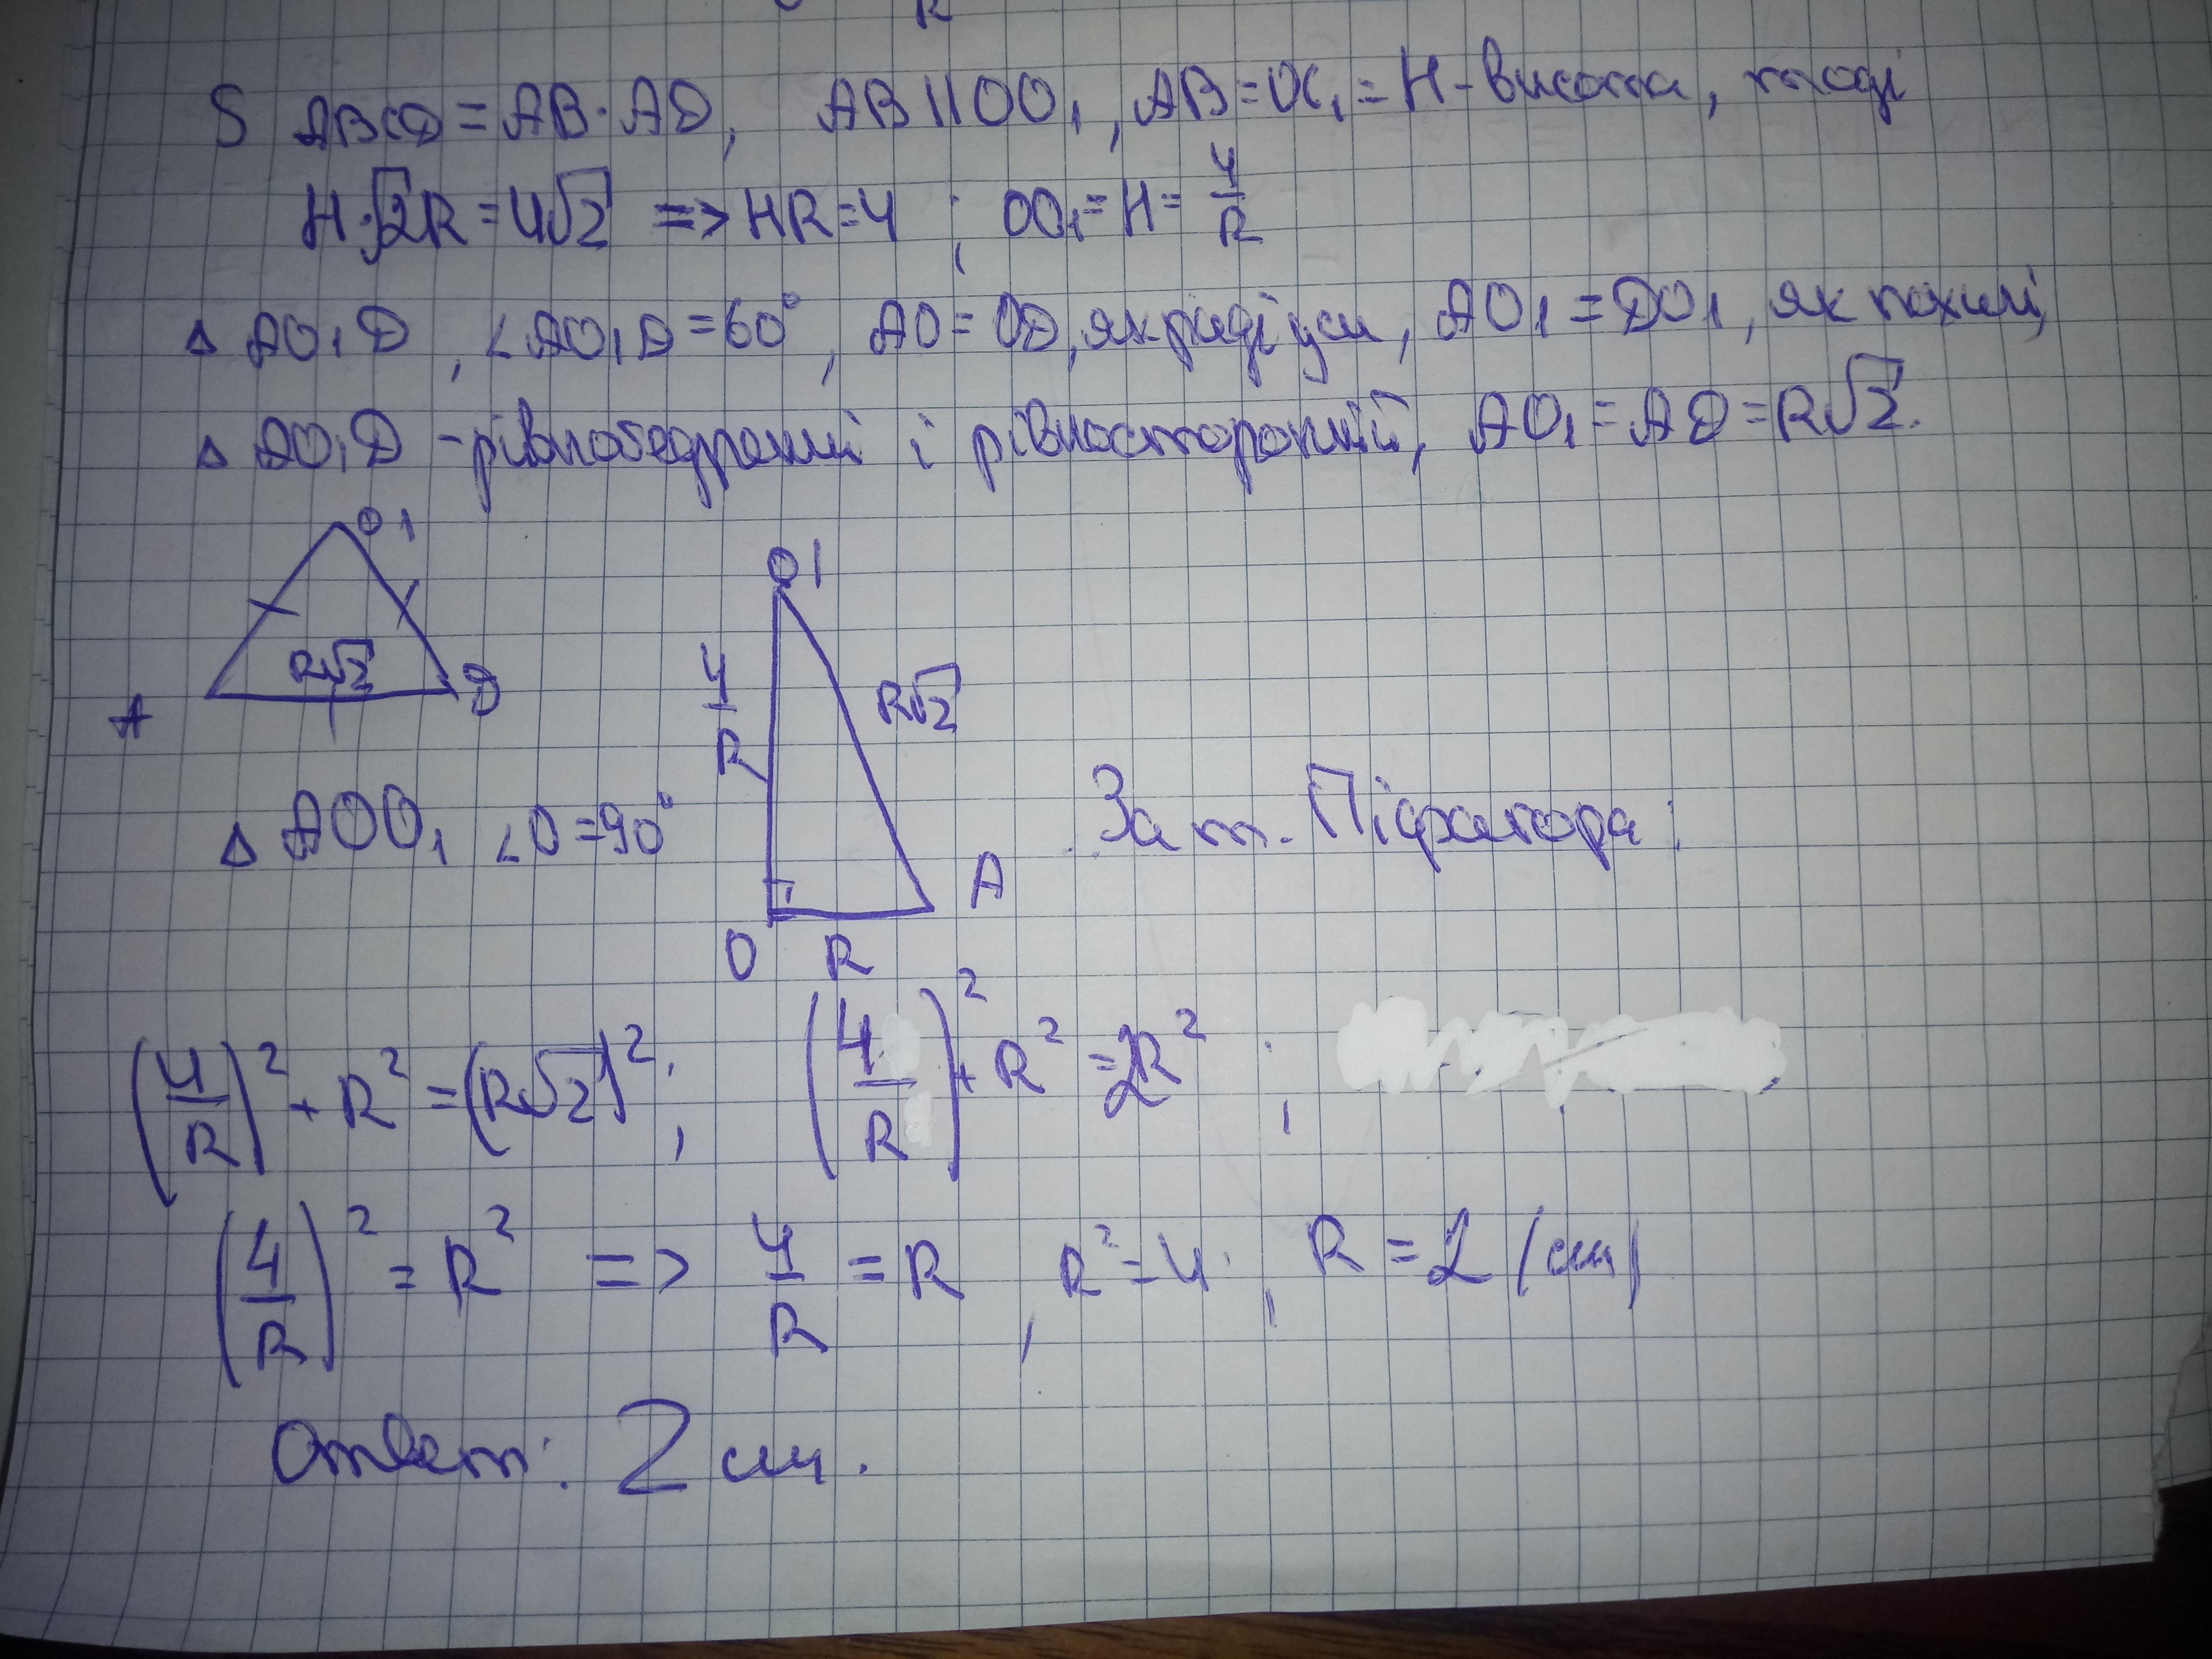 R
S ABCD = AB · AD, AB || OO₁, AB = OO₁ = H - висота, тоді
H·√2R = 4√2 => HR = 4 ; OO₁ = H = 4/R
△ AO₁D, ∠AO₁D = 60°, AO = OD, як радіуси, AO₁ = DO₁, як похилі,
△ AO₁D - рівнобедрений і рівносторонній, AO₁ = AD = R√2.
O1
A R√2 D
O1
4/R R√2
△ AOO₁ ∠O = 90°
За т. Піфагора:
A
O R
(4/R)² + R² = (R√2)²; (4/R)² + R² = 2R² ;
(4/R)² = R² => 4/R = R, R² = 4; R = 2 (см)
Ответ: 2 см.